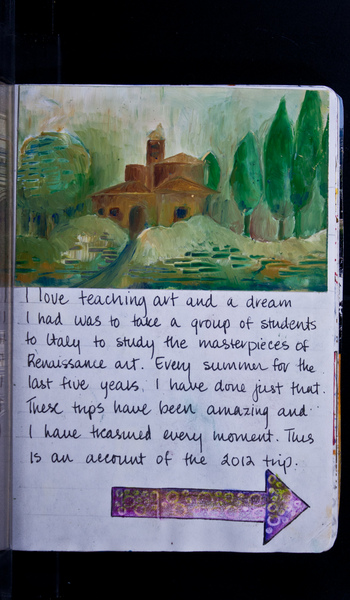 I love teaching art and a dream
I had was to take a group of students
to Italy to study the masterpieces of
Renaissance art. Every summer for the
last five years, I have done just that.
These trips have been amazing and
I have treasured every moment. This
is an account of the 2012 trip.